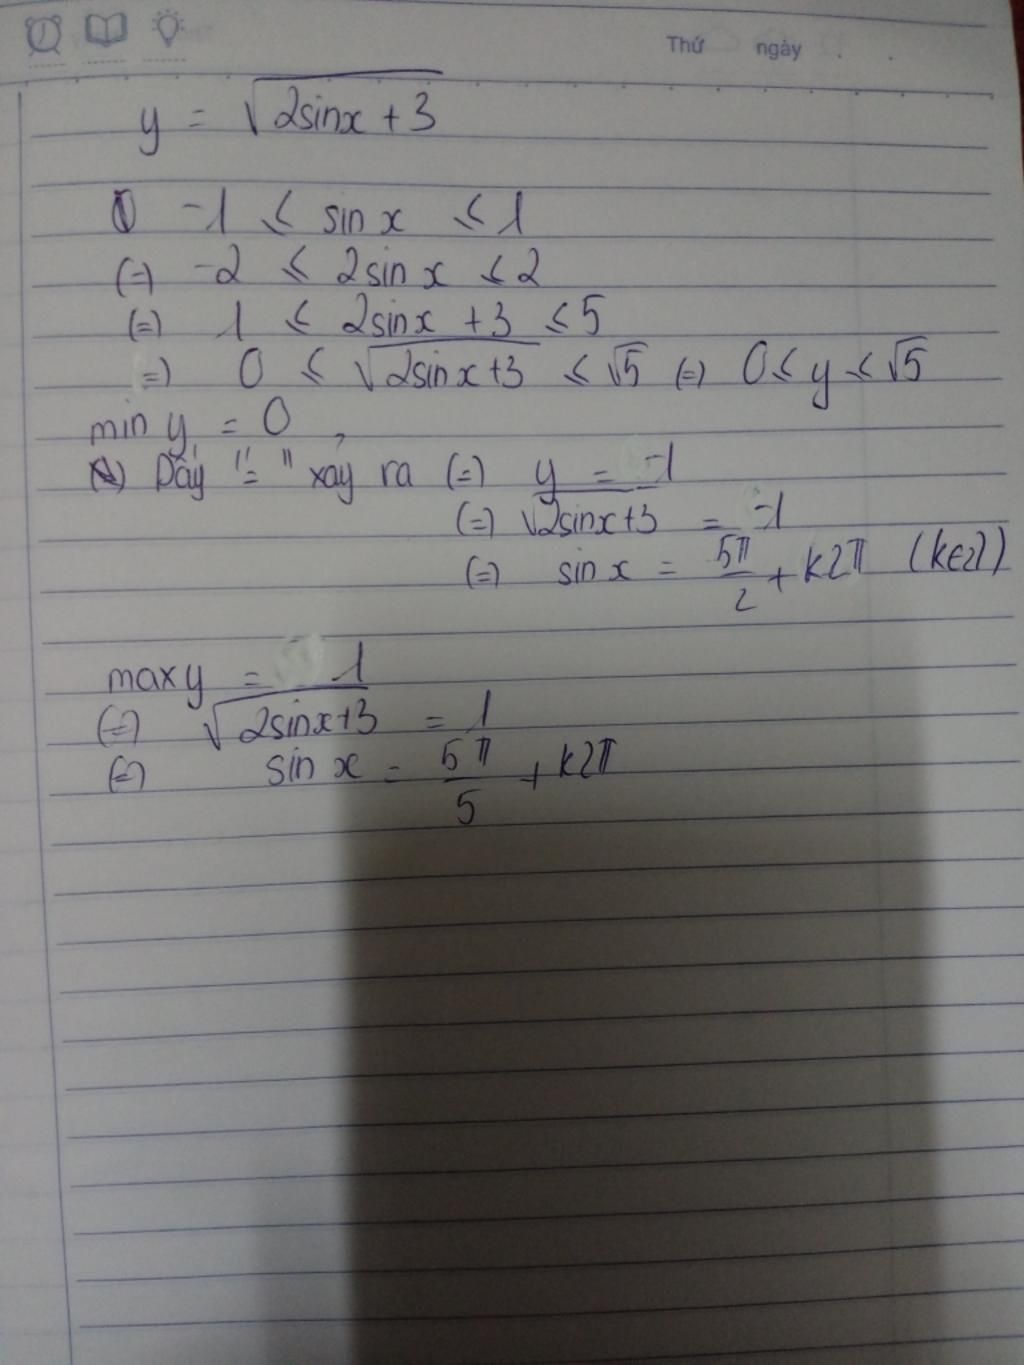 Thứ ngày
y = √(2sinx + 3)
-1 ≤ sin x ≤ 1
(=) -2 ≤ 2sin x ≤ 2
(=) 1 ≤ 2sinx + 3 ≤ 5
=) 0 ≤ √(2sinx+3) ≤ √5 (=) 0 ≤ y ≤ √5
min y = 0
Dấy "=" xảy ra (=) y = -1
(=) √(2sinx+3) = -1
(=) sin x = 5π/2 + k2π (k∈Z)
max y = 1
(=) √(2sinx+3) = 1
(=) sin x = 5π/5 + k2π